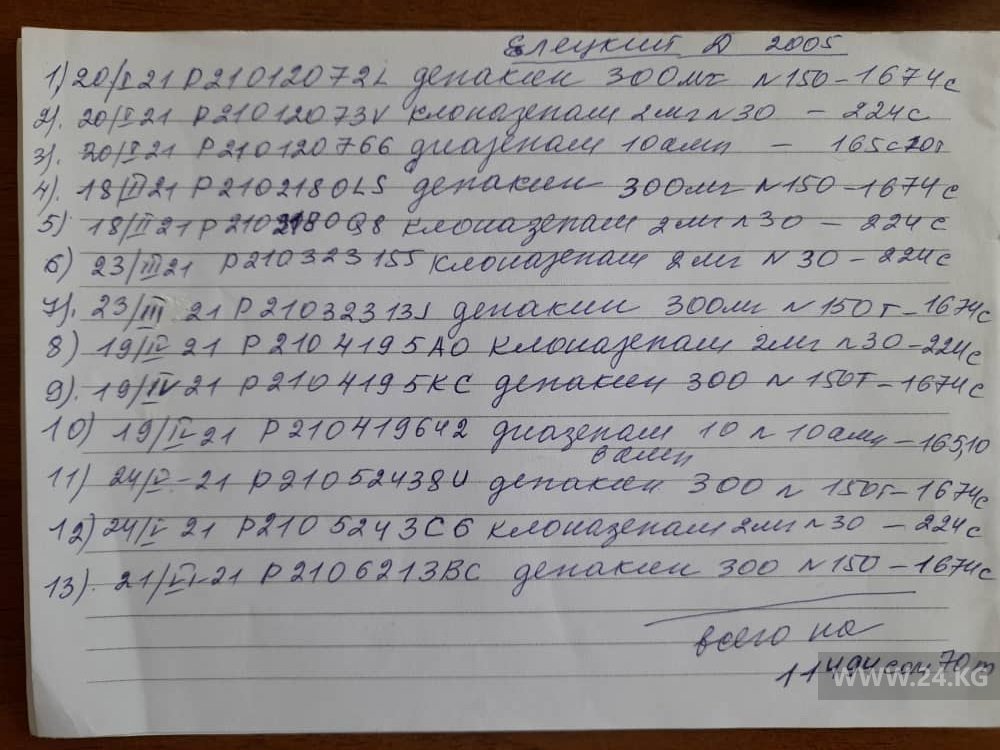 Елецкий Д 2005
1) 20/I 21 Р21012072L депакин 300мг N150-1674с
2). 20/I 21 Р21012073V клоназепам 2мг N30 - 224с
3). 20/I 21 Р210120766 диазепам 10амп - 165с70т
4). 18/II 21 Р2102180LS депакин 300мг N150-1674с
5) 18/II 21 Р2102180Q8 клоназепам 2мг N30 - 224с
6) 23/III 21 Р210323155 клоназепам 2мг N30-224с
7). 23/III 21 Р21032313J депакин 300мг N150т-1674с
8) 19/IV 21 Р2104195А0 клоназепам 2мг N30-224с
9). 19/IV 21 Р2104195КС депакин 300 N150т-1674с
10) 19/IV-21 Р210419642 диазепам 10 N10амп-165,10
в амп
11) 24/V-21 Р21052438U депакин 300 N 150т-1674с
12) 24/V 21 Р2105243С6 клоназепам 2мг N30 - 224с
13). 21/VI-21 Р2106213ВС депакин 300 N150-1674с
всего на
11494сом 70т
WWW.24.KG